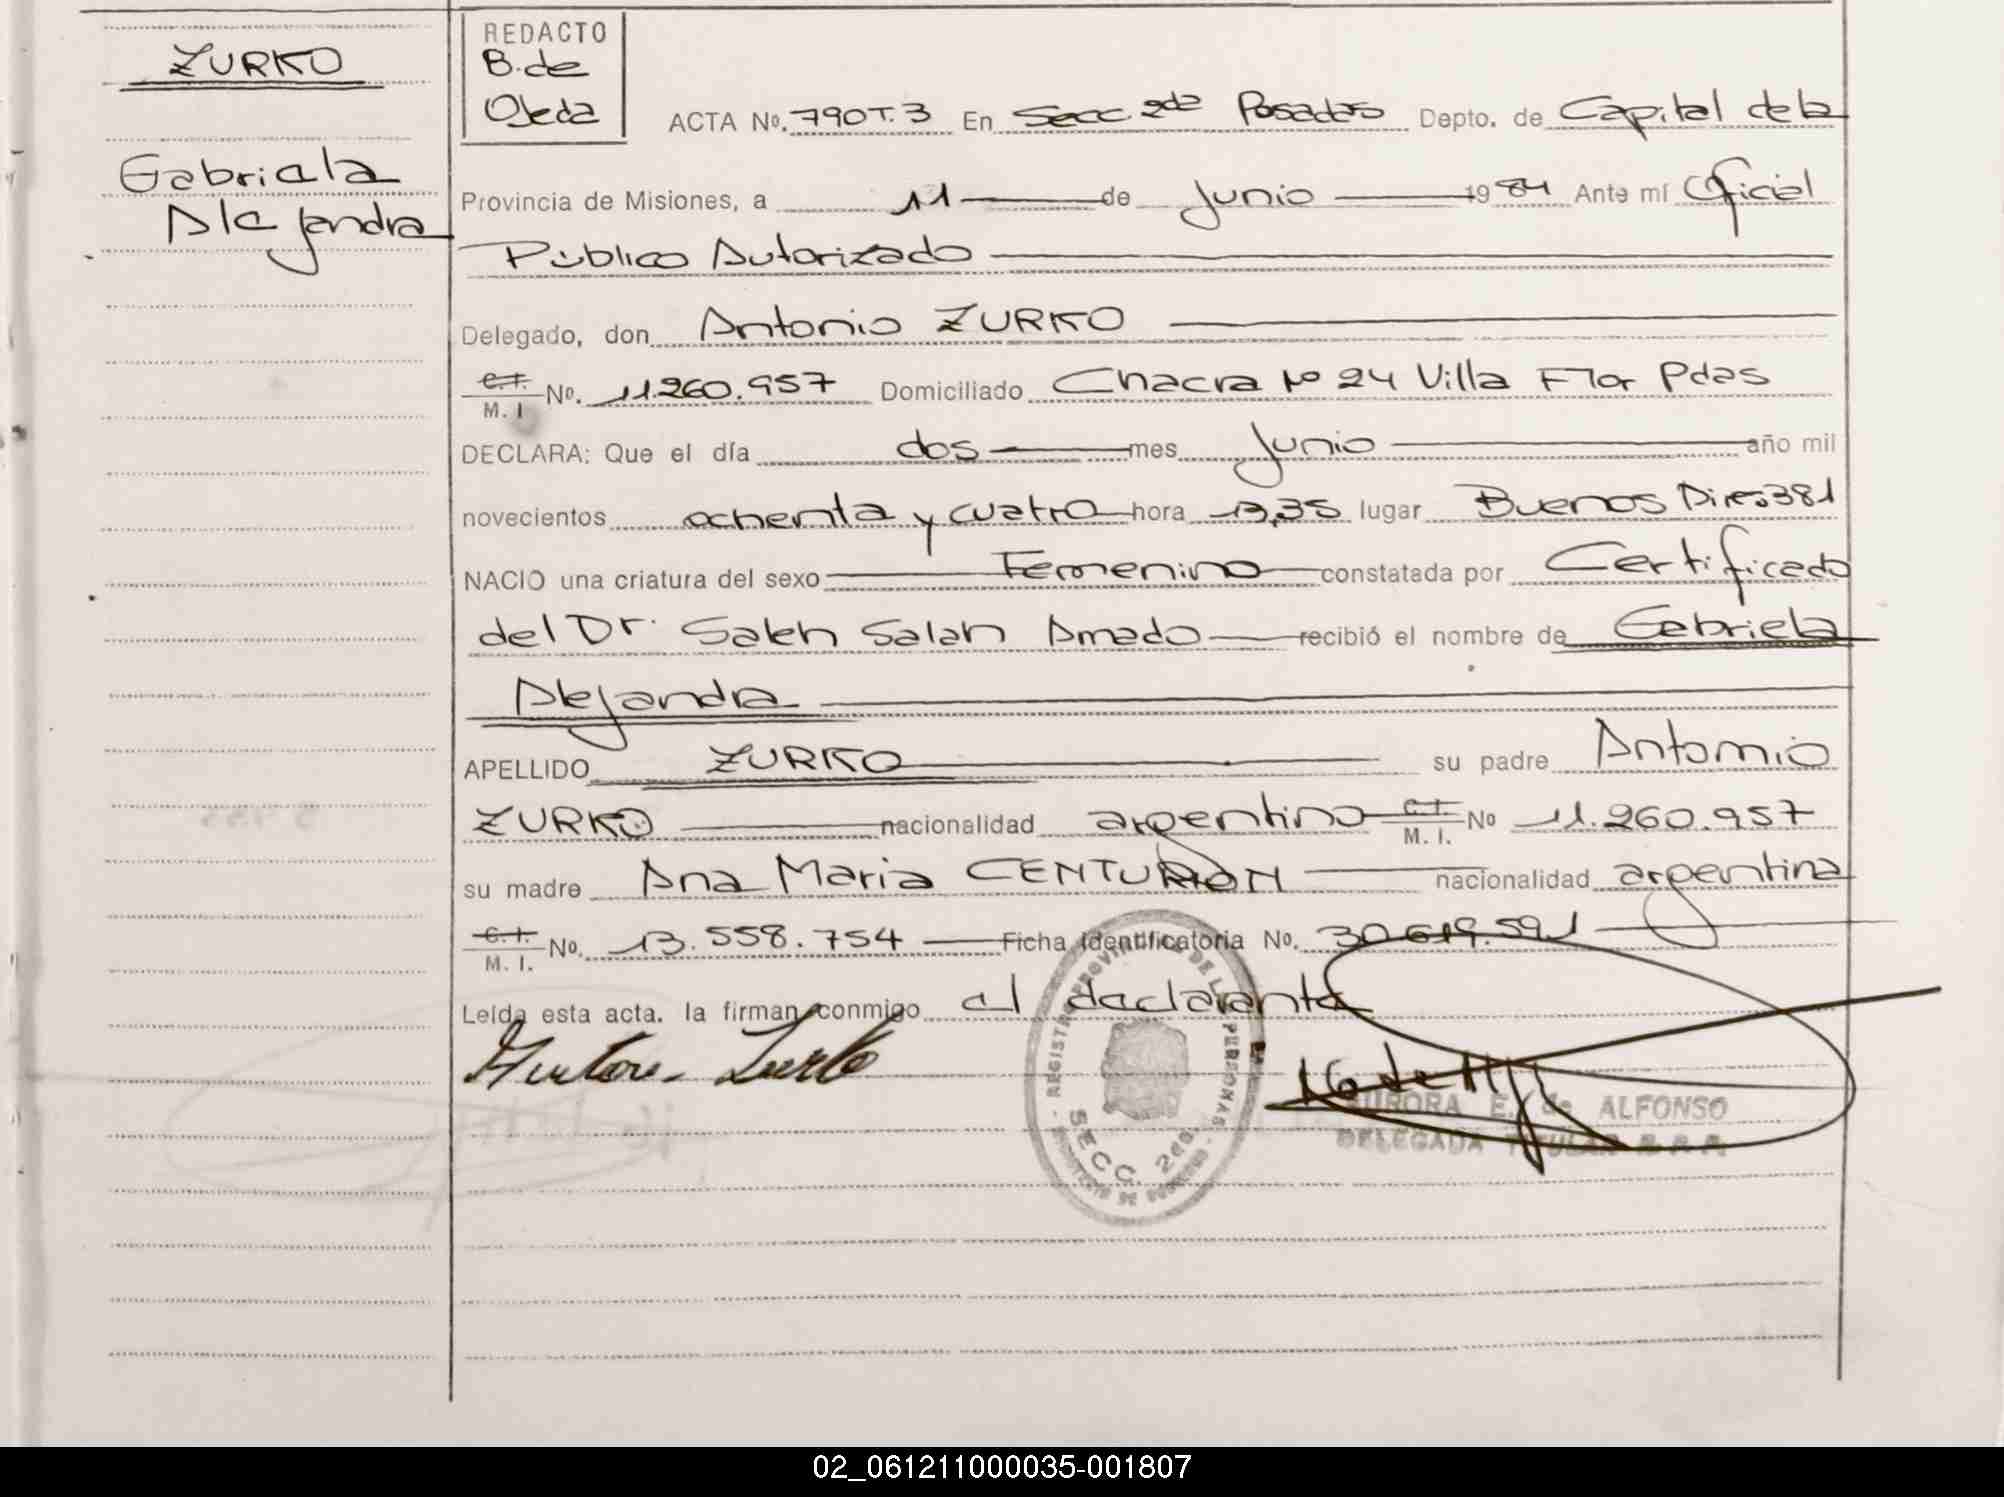 ZURKO
Gabriela
Alejandra
REDACTO
B. de
Ojeda
ACTA Nº. 790T.3 En Secc. 2da Posadas Depto. de Capital de la
Provincia de Misiones, a 11 de Junio 1984 Ante mí Oficial
Público Autorizado
Delegado, don Antonio ZURKO
C.I. M. I. Nº. 11.260.957 Domiciliado Chacra Nº 24 Villa Flor Pdas
DECLARA: Que el día dos mes Junio año mil
novecientos ochenta y cuatro hora 13,35 lugar Buenos Aires 381
NACIO una criatura del sexo Femenino constatada por Certificado
del Dr. Saleh Salah Amado recibió el nombre de Gabriela
Alejandra
APELLIDO ZURKO su padre Antonio
ZURKO nacionalidad argentino C.I. M. I. Nº 11.260.957
su madre Ana Maria CENTURION nacionalidad argentina
C.I. M. I. Nº. 13.558.754 Ficha Identificatoria Nº. 30.619.591
Leída esta acta. la firman conmigo el declarante
Antonio Zurko
REGISTRO PROVINCIAL DE LAS PERSONAS
SECC. 2da.
MINISTERIO DE GOBIERNO
AURORA E. de ALFONSO
DELEGADA TITULAR
02_061211000035-001807